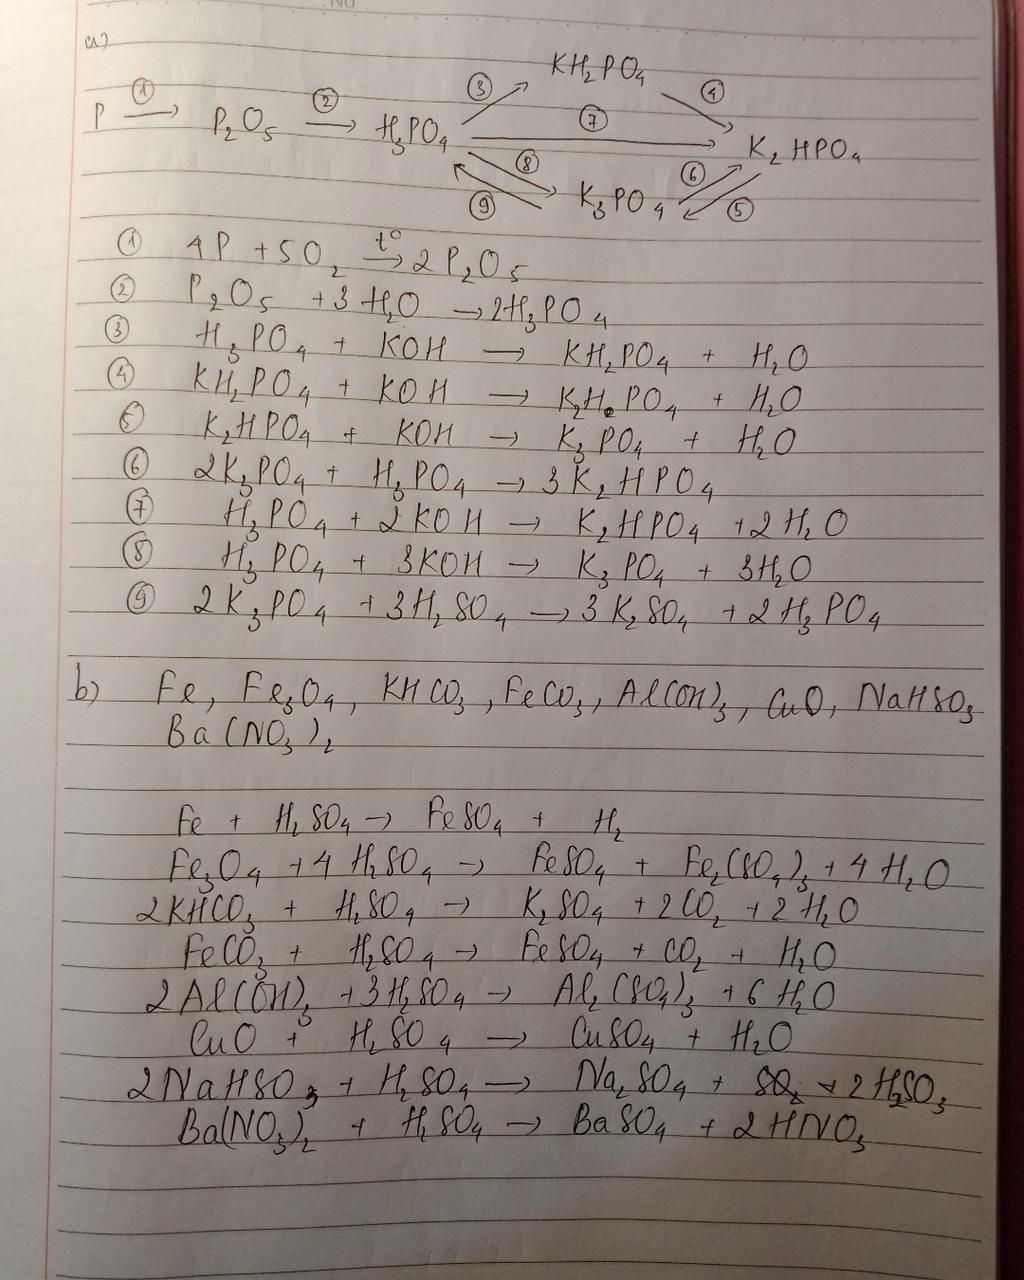 No
a)
KH₂PO₄
③ ④
P ①→ P₂O₅ ②→ H₃PO₄ ⑦→ K₂HPO₄
⑧ ⑥
⑨ K₃PO₄ ⑤
① 4P + 5O₂ t°→ 2P₂O₅
② P₂O₅ + 3H₂O → 2H₃PO₄
③ H₃PO₄ + KOH → KH₂PO₄ + H₂O
④ KH₂PO₄ + KOH → K₂HPO₄ + H₂O
⑤ K₂HPO₄ + KOH → K₃PO₄ + H₂O
⑥ 2K₃PO₄ + H₃PO₄ → 3K₂HPO₄
⑦ H₃PO₄ + 2KOH → K₂HPO₄ + 2H₂O
⑧ H₃PO₄ + 3KOH → K₃PO₄ + 3H₂O
⑨ 2K₃PO₄ + 3H₂SO₄ → 3K₂SO₄ + 2H₃PO₄
b) Fe, Fe₃O₄, KHCO₃, FeCO₃, Al(OH)₃, CuO, NaHSO₃
Ba(NO₃)₂
Fe + H₂SO₄ → FeSO₄ + H₂
Fe₃O₄ + 4H₂SO₄ → FeSO₄ + Fe₂(SO₄)₃ + 4H₂O
2KHCO₃ + H₂SO₄ → K₂SO₄ + 2CO₂ + 2H₂O
FeCO₃ + H₂SO₄ → FeSO₄ + CO₂ + H₂O
2Al(OH)₃ + 3H₂SO₄ → Al₂(SO₄)₃ + 6H₂O
CuO + H₂SO₄ → CuSO₄ + H₂O
2NaHSO₃ + H₂SO₄ → Na₂SO₄ + SO₂ + 2H₂SO₃
Ba(NO₃)₂ + H₂SO₄ → BaSO₄ + 2HNO₃